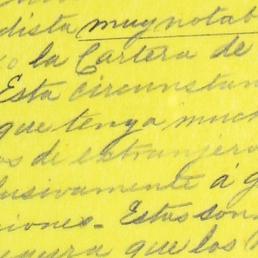 dista muy notab
o la Cartera de
Esta circunstan
que tenga much
os di extranjero
lusivamente á g
ciones - Estas son
egura que los